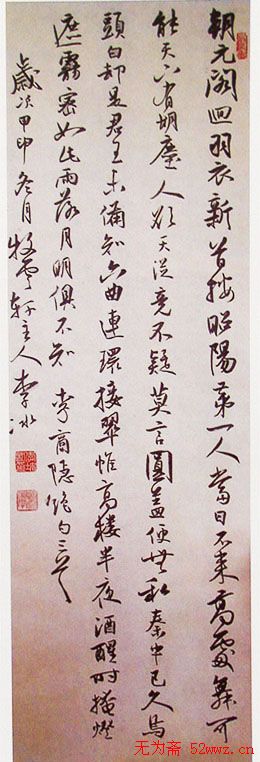 朝元閣迴羽衣新首按昭陽第一人當日不来高處舞可
能天下有胡塵人欲天從竟不疑莫言圓蓋便無私秦中已久烏
頭白却是君王未備知六曲連環接翠帷高樓半夜酒醒時掩燈
遮霧密如此雨落月明俱不知 李商隱絶句三首
歲次甲申冬月牧雲軒主人李冰
无为斋 52wwz.cn